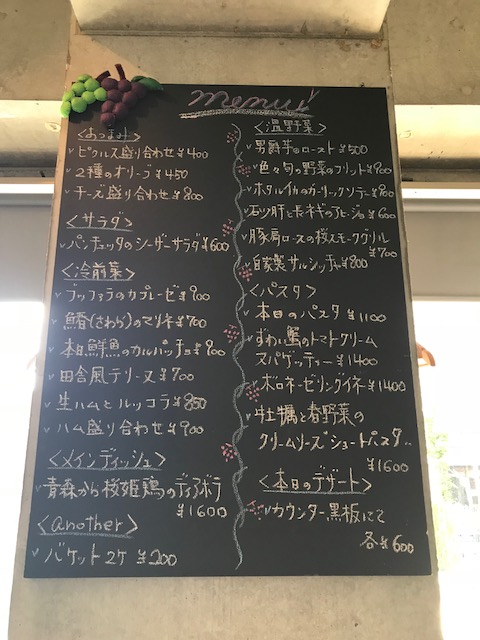 menu
<おつまみ>
ピクルス盛り合わせ ¥400
2種のオリーブ ¥450
チーズ盛り合わせ ¥800
<サラダ>
パンチェッタのシーザーサラダ ¥600
<冷前菜>
ブッファラのカプレーゼ ¥900
鰆(さわら)のマリネ ¥700
本日鮮魚のカルパッチョ ¥900
田舎風テリーヌ ¥700
生ハムとルッコラ ¥850
ハム盛り合わせ ¥900
<メインディッシュ>
青森から桜姫鶏のディアボラ
¥1600
<another>
バケット2ケ ¥200
<温野菜>
男爵芋のロースト ¥500
色々旬の野菜のフリット ¥900
ホタルイカのガーリックソテー ¥900
砂肝と長ネギのアヒージョ ¥600
豚肩ロースの桜スモークグリル
¥700
自家製サルシッチャ ¥800
<パスタ>
本日のパスタ ¥1100
ずわい蟹のトマトクリーム
スパゲッティー ¥1400
ボロネーゼリングイネ ¥1400
牡蠣と春野菜の
クリームソースショートパスタ..
¥1600
<本日のデザート>
カウンター黒板にて
各¥600